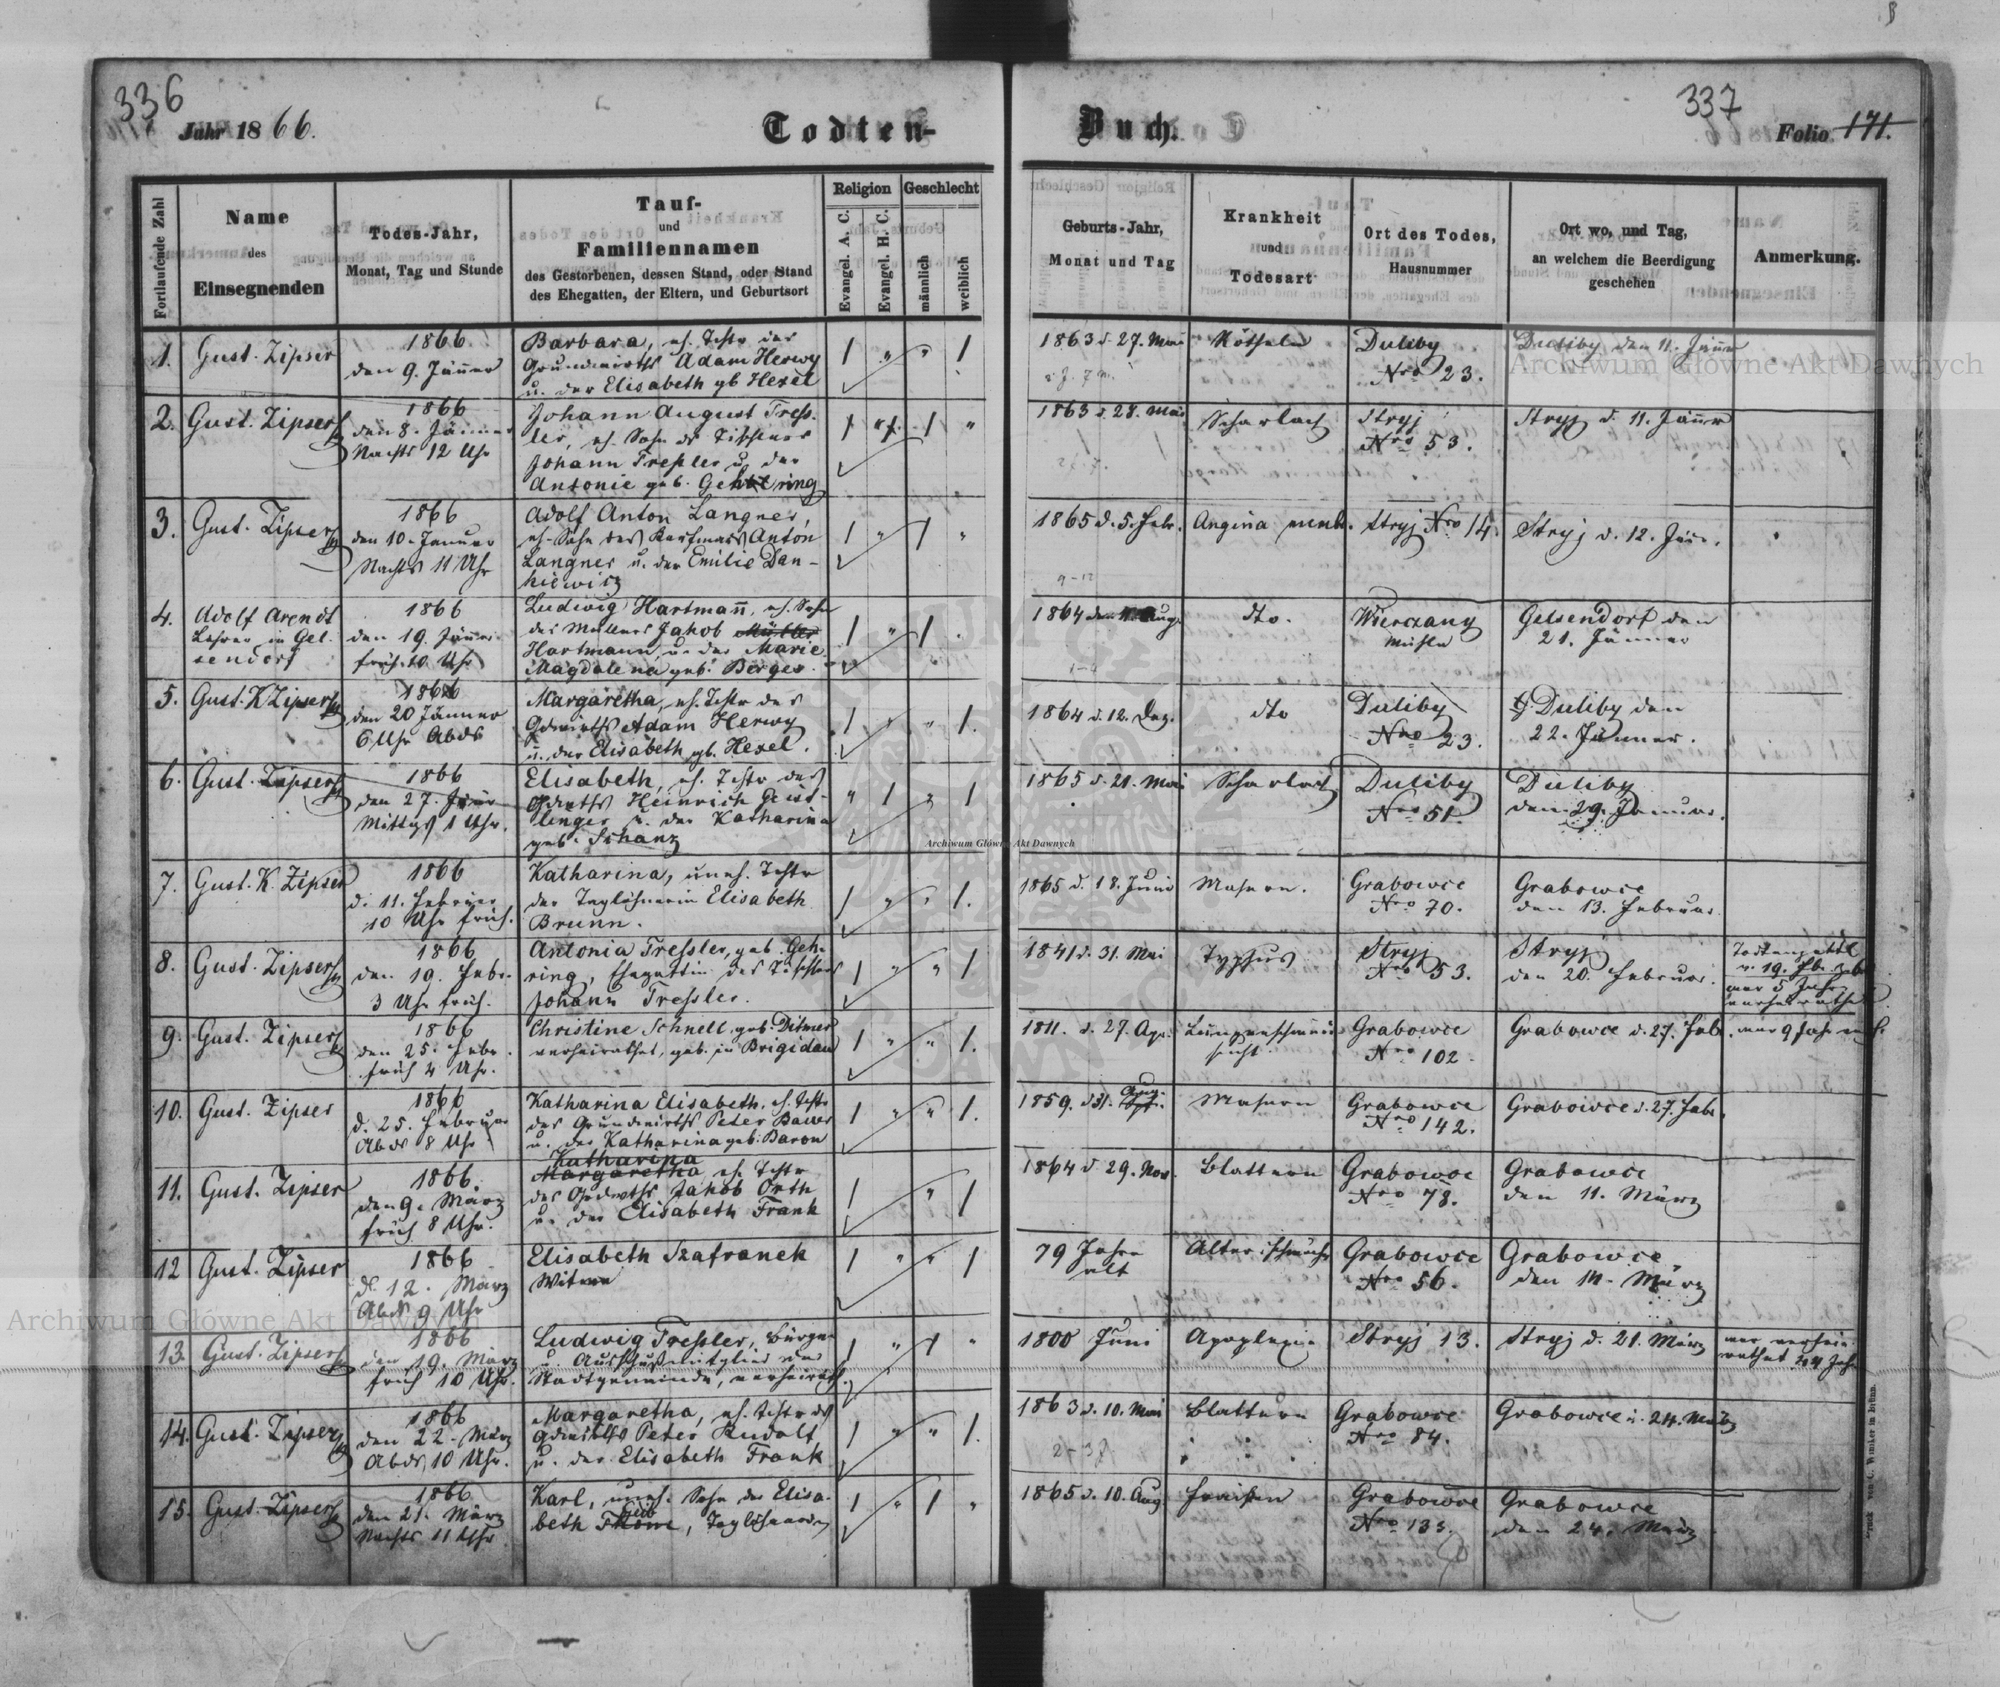 336
Jahr 1866.
Todten-
Buch.
337
Folio 171.
Fortlaufende Zahl
Name
des
Einsegnenden
Todes-Jahr,
Monat, Tag und Stunde
Tauf-
und
Familiennamen
des Gestorbenen, dessen Stand, oder Stand
des Ehegatten, der Eltern, und Geburtsort
Religion
Evangel. A. C.
Evangel. H. C.
Geschlecht
männlich
weiblich
Geburts-Jahr,
Monat und Tag
Krankheit
und
Todesart
Ort des Todes,
Hausnummer
Ort wo, und Tag,
an welchem die Beerdigung
geschehen
Anmerkung.
1. Gust. Zipser
1866
den 9. Jänner
Barbara, eh. Tchtr des
Grundwirths Adam Herwy
u. der Elisabeth gb Hexel
1863 d. 27. Mai
Rötheln
Duliby
Nro 23.
Duliby den 11. Jänn
2. Gust. Zipser
1866
den 8. Jänner
Nachts 12 Uhr
Johann August Tress-
ler, eh. Sohn des Tischlers
Johann Tressler u. der
Antonie geb. Gehring
1863 d. 28. Mai
Scharlach
Stryj
Nro 53.
Stryj d. 11. Jänn
3. Gust. Zipser
1866
den 10. Januar
Nachts 11 Uhr
Adolf Anton Langner,
eh. Sohn des Kaufmans Anton
Langner u. der Emilie Dan-
kiewicz
1865 d. 5. Febr.
Angina memb.
Stryj Nro 14.
Stryj d. 12. Jän.
4. Adolf Arendt
Lehrer in Gel-
sendorf
1866
den 19. Jänner
früh 10 Uhr
Ludwig Hartmann, eh. Sohn
des Müllers Jakob Müller
Hartmann u. der Marie
Magdalena geb. Berger
1864 den Aug.
dto.
Wierczany
Mühle
Gelsendorf den
21. Jänner
5. Gust. K Zipser
1866
den 20 Jänner
6 Uhr Abds
Margaretha, eh. Tchtr des
Gdwirths Adam Herwy
u. der Elisabeth gb. Hexel.
1864 d. 12. Dez.
dto
Duliby
Nro 23.
Duliby den
22. Jänner.
6. Gust. Zipser
1866
den 27. Jän
Mittags 1 Uhr.
Elisabeth, eh. Tchtr des
Gdwirths Heinrich Geist-
linger u. der Katharina
geb. Schanz
1865 d. 21. Mai
Scharlach
Duliby
Nro 51.
Duliby
den 29. Januar.
7. Gust. K. Zipser
1866
d. 11. Februar
10 Uhr früh.
Katharina, uneh. Tchtr
der Taglöhnerin Elisabeth
Brunn.
1865 d. 18. Juni
Masern.
Grabowce
Nro 70.
Grabowce
den 13. Februar
8. Gust. Zipser
1866
den 19. Febr.
3 Uhr früh.
Antonia Tressler, geb. Geh-
ring, Ehegattin des Tischlers
Johann Tressler.
1841 d. 31. Mai
Typhus
Stryj
Nro 53.
Stryj
den 20. Februar.
war 5 Jahre
verheirathet
9. Gust. Zipser
1866
den 25. Febr.
früh 4 Uhr.
Christine Schnell, geb. Ditmer
verheirathet, geb. in Brigidau
1811. d. 27. Apr.
Lungenschwind-
sucht
Grabowce
Nro 102
Grabowce d. 27. Feb.
war 9 Jahr verh.
10. Gust. Zipser
1866
d. 25. Februar
Abds 8 Uhr
Katharina Elisabeth, eh. Tchtr
des Grundwirths Peter Bauer
u. der Katharina geb. Baron
1859. d 31. Aug.
Masern
Grabowce
Nro 142.
Grabowce d. 27. Febr.
11. Gust. Zipser
1866.
den 9. März
früh 8 Uhr.
Katharina
Margaretha eh. Tchtr
des Gdwirths Jakob Orth
u. der Elisabeth Frank
1864 d. 29. Nov.
Blattern
Grabowce
Nro 78.
Grabowce
den 11. März
12 Gust. Zipser
1866
d. 12. März
Abds 9 Uhr
Elisabeth Szafranek
Witwe
79 Jahre
alt
Altersschwäche
Grabowce
Nro 56.
Grabowce
den 14. März
13. Gust. Zipser
1866
den 19. März
früh 10 Uhr.
Ludwig Tressler, Bürger
u. Ausschußmitglied der
Stadtgemeinde, verheirath.
1800 Juni
Apoplexie
Stryj 13.
Stryj d. 21. März
war verhei-
rathet Jahr
14. Gust. Zipser
1866
den 22. März
Abds, 10 Uhr.
Margaretha, eh. Tchtr ds
Gdwirths Peter Rudolf
u. der Elisabeth Frank
1863 d. 10. Mai
Blattern
Grabowce
Nro 84.
Grabowce d. 24. März
15. Gust. Zipser
1866
den 21. März
Nachts 11 Uhr
Karl, uneh. Sohn der Elisa-
beth, Taglöhnerin
1865 d. 10. Aug.
Fraisen
Grabowce
Nro 133.
Grabowce
den 24. März
Archiwum Główne Akt Dawnych
Archiwum Główne Akt Dawnych
Archiwum Główne Akt Dawnych
Druck von C. Winiker in Brünn.